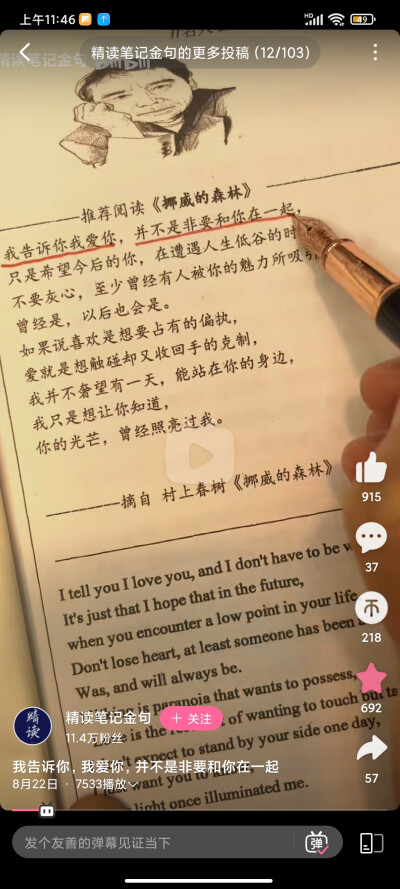 上午11:46
精读笔记金句的更多投稿 (12/103)
推荐阅读《挪威的森林》
我告诉你我爱你，并不是非要和你在一起，
只是希望今后的你，在遭遇人生低谷的时
不要灰心，至少曾经有人被你的魅力所吸引
曾经是，以后也会是。
如果说喜欢是想要占有的偏执，
爱就是想触碰却又收回手的克制，
我并不奢望有一天，能站在你的身边，
我只是想让你知道，
你的光芒，曾经照亮过我。
摘自 村上春树《挪威的森林》
I tell you I love you, and I don't have to be w
It's just that I hope that in the future,
when you encounter a low point in your life
Don't lose heart, at least someone has been
Was, and will always be.
is paranoia that wants to possess,
is the of wanting to touch but
expect to stand by your side one day,
want you to know,
light once illuminated me.
915
37
218
692
57
精读
精读笔记金句
+ 关注
11.4万粉丝
我告诉你，我爱你，并不是非要和你在一起
8月22日 · 7533播放
发个友善的弹幕见证当下
弹